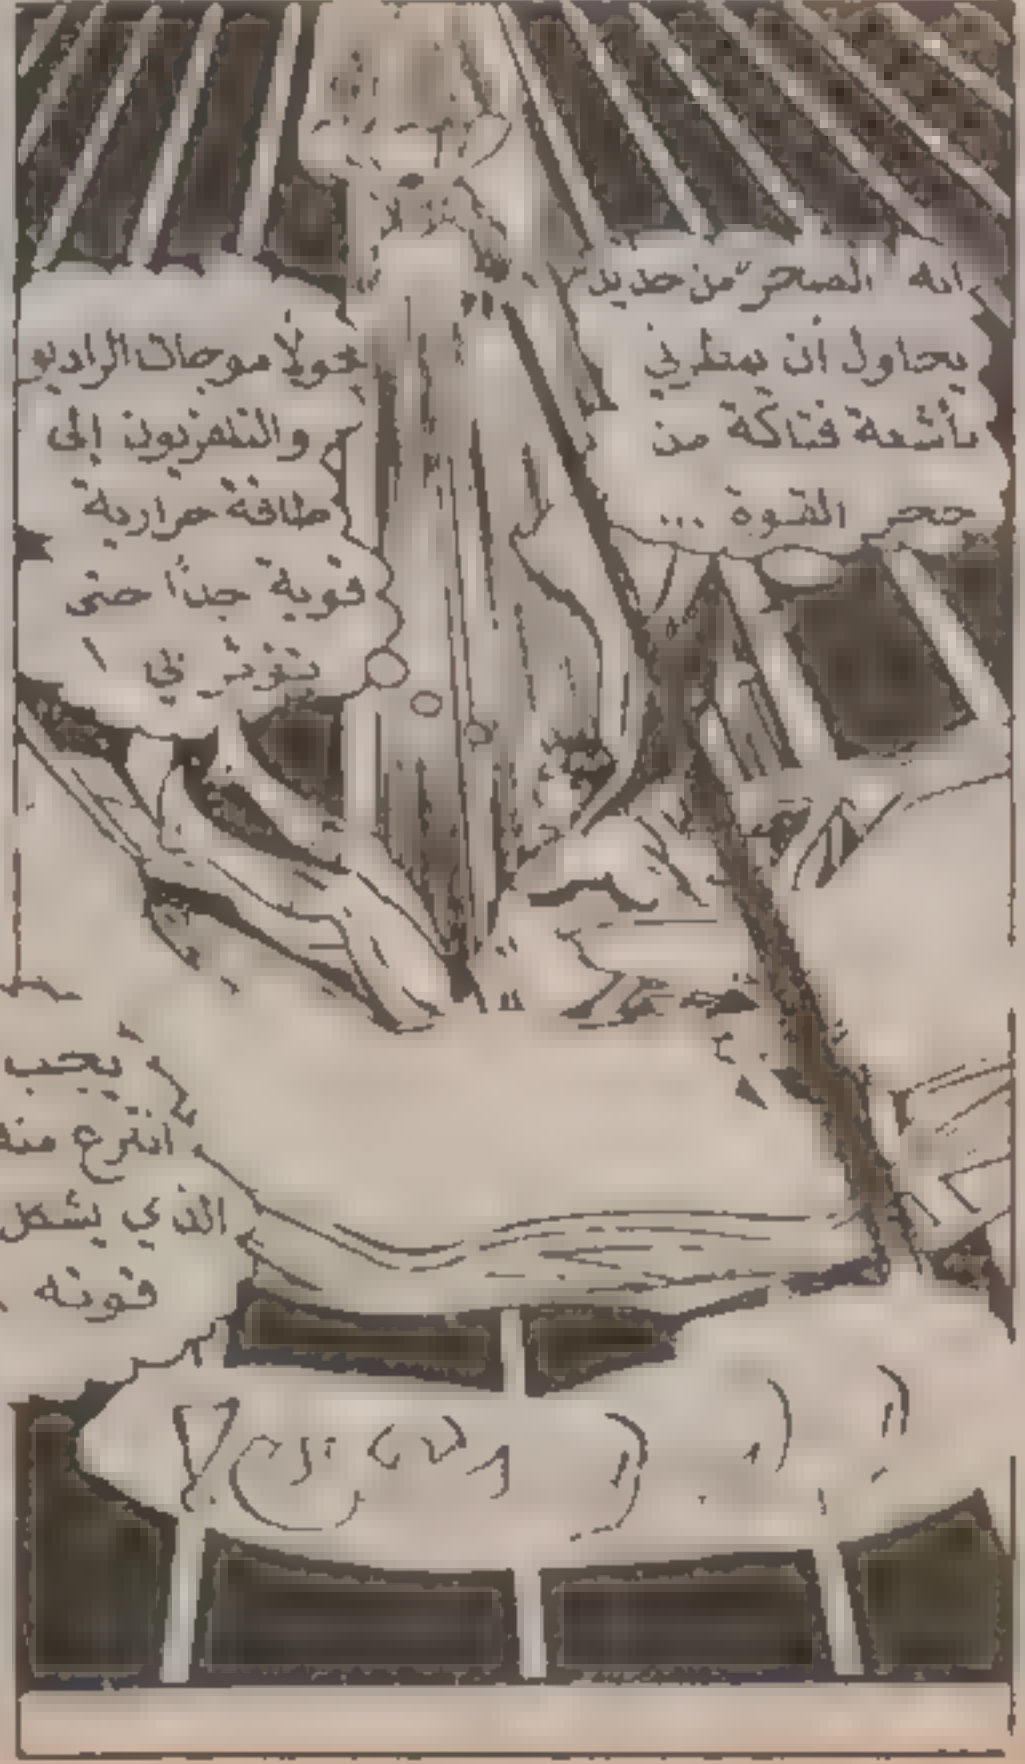 انه الصخر من جديد
يحاول أن يمطرني
بأشعة فتاكة من
حجر القوة ...
محولا موجات الراديو
والتلفزيون إلى
طاقة حرارية
قوية جدًا حتى
تؤثر بي !
يجب
انتزع منه
الذي يشكل
قوته